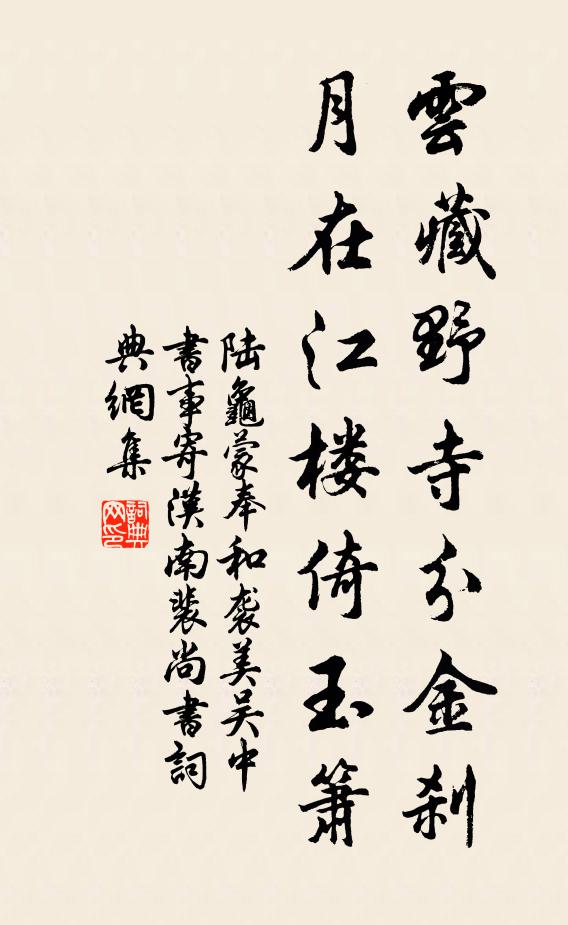 雲藏野寺分金刹
月在江楼倚玉簫
陆龜蒙奉和袭美吴中
書事寄漢南裴尚書詞
典網集
詞典网印